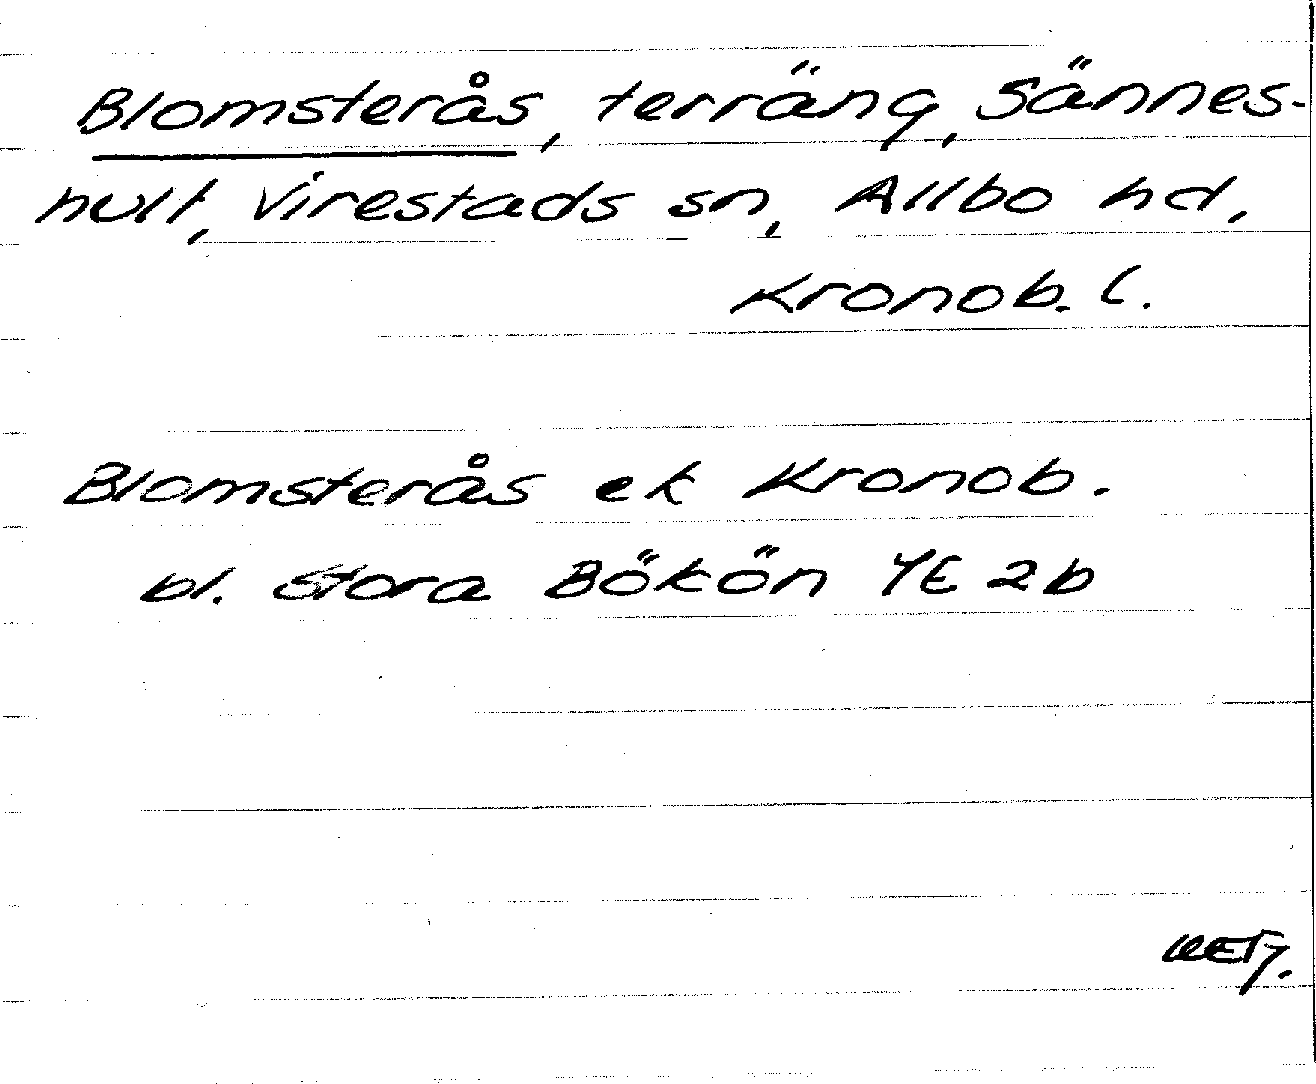 Blomsterås, terräng, Sännes-
hult, Virestads sn, Allbo hd,
Kronob. l.
Blomsterås ek Kronob.
bl. Stora Bökön YE 2b